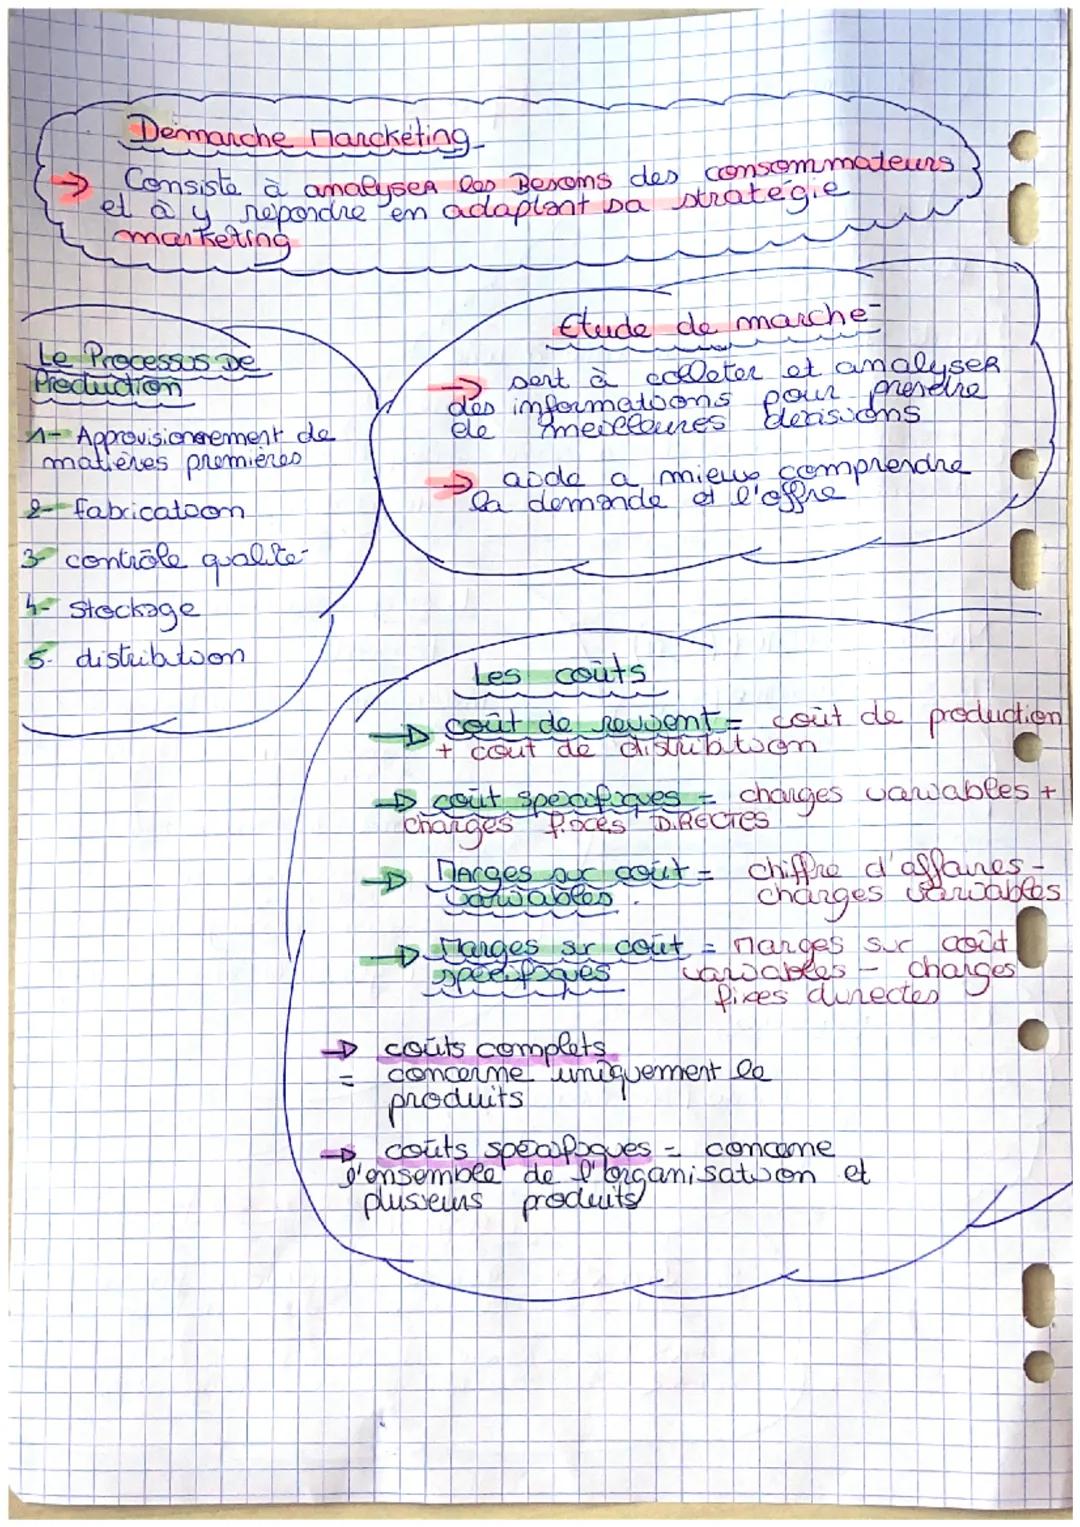 Demarche Marckéting
→ Consiste à analyser les Besoins des consommateurs
et à y repondre en adaptant sa stratégie
marketing
Etude de marché
→ sert à colleter et analyser
des informations pour prendre
de meilleures decisions
→ aide a mieux comprendre
la demande et l'offre
Le Processus De
Production
1- Approvisionnement de
matières premières
2- fabrication
3- contrôle qualité
4- Stockage
5- distribution
Les coûts
→ coût de revient = coût de production
+ cout de distribution
→ coût specifiques = charges variables +
charges fixes DIRECTES
→ Marges sur coût = chiffre d'affaires -
variables. charges variables
→ Marges sur coût = Marges sur coût
spécifiques variables - charges
fixes directes
→ coûts complets
= concerne uniquement le
produits
→ coûts specifiques = concerne
l'ensemble de l'organisation et
plusieurs produits